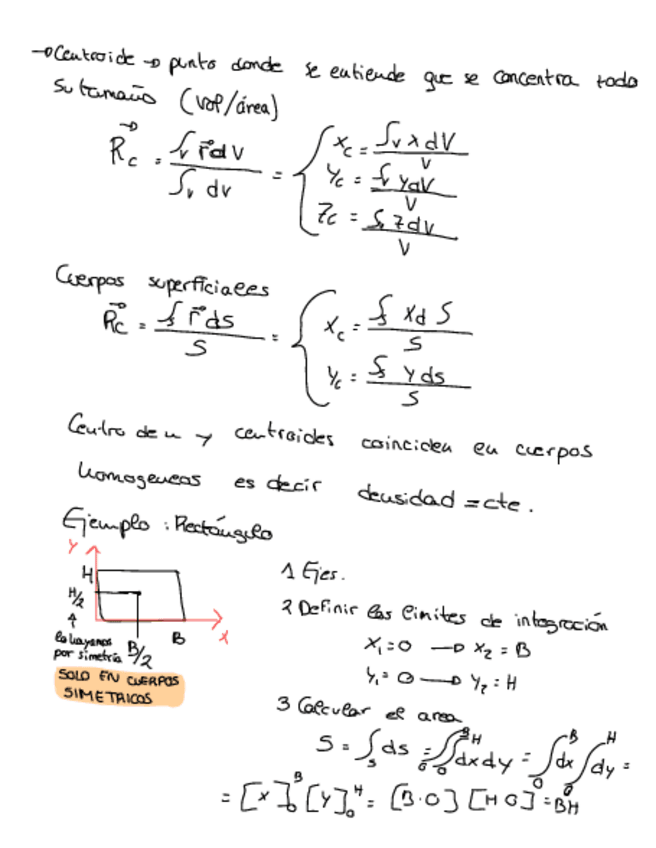 →Centroide → punto donde se entiende que se concentra todo
su tamaño (vol/área)
R⃗c = ∫v r⃗dv / ∫v dv = { Xc = ∫v x dV / V
Yc = ∫v ydV / V
Zc = ∫v z dv / V
Cuerpos superficiales
R⃗c = ∫s r⃗ds / S = { Xc = ∫s Xd S / S
Yc = ∫s y ds / S
Centro de m y centroides coinciden en cuerpos
homogeneos es decir densidad = cte.
Ejemplo : Rectángulo
Y
H
H/2
B/2
B
X
lo hayamos
por simetría
SOLO EN CUERPOS
SIMETRICOS
1 Ejes.
2 Definir los limites de integración
X₁=0 → X₂ = B
Y₁ = 0 → Y₂ = H
3 Calcular el area
S = ∫s ds = ∫₀ᴮ∫₀ᴴ dx dy = ∫₀ᴮ dx ∫₀ᴴ dy =
= [x]₀ᴮ [Y]₀ᴴ = [B-0] [H 0] = BH